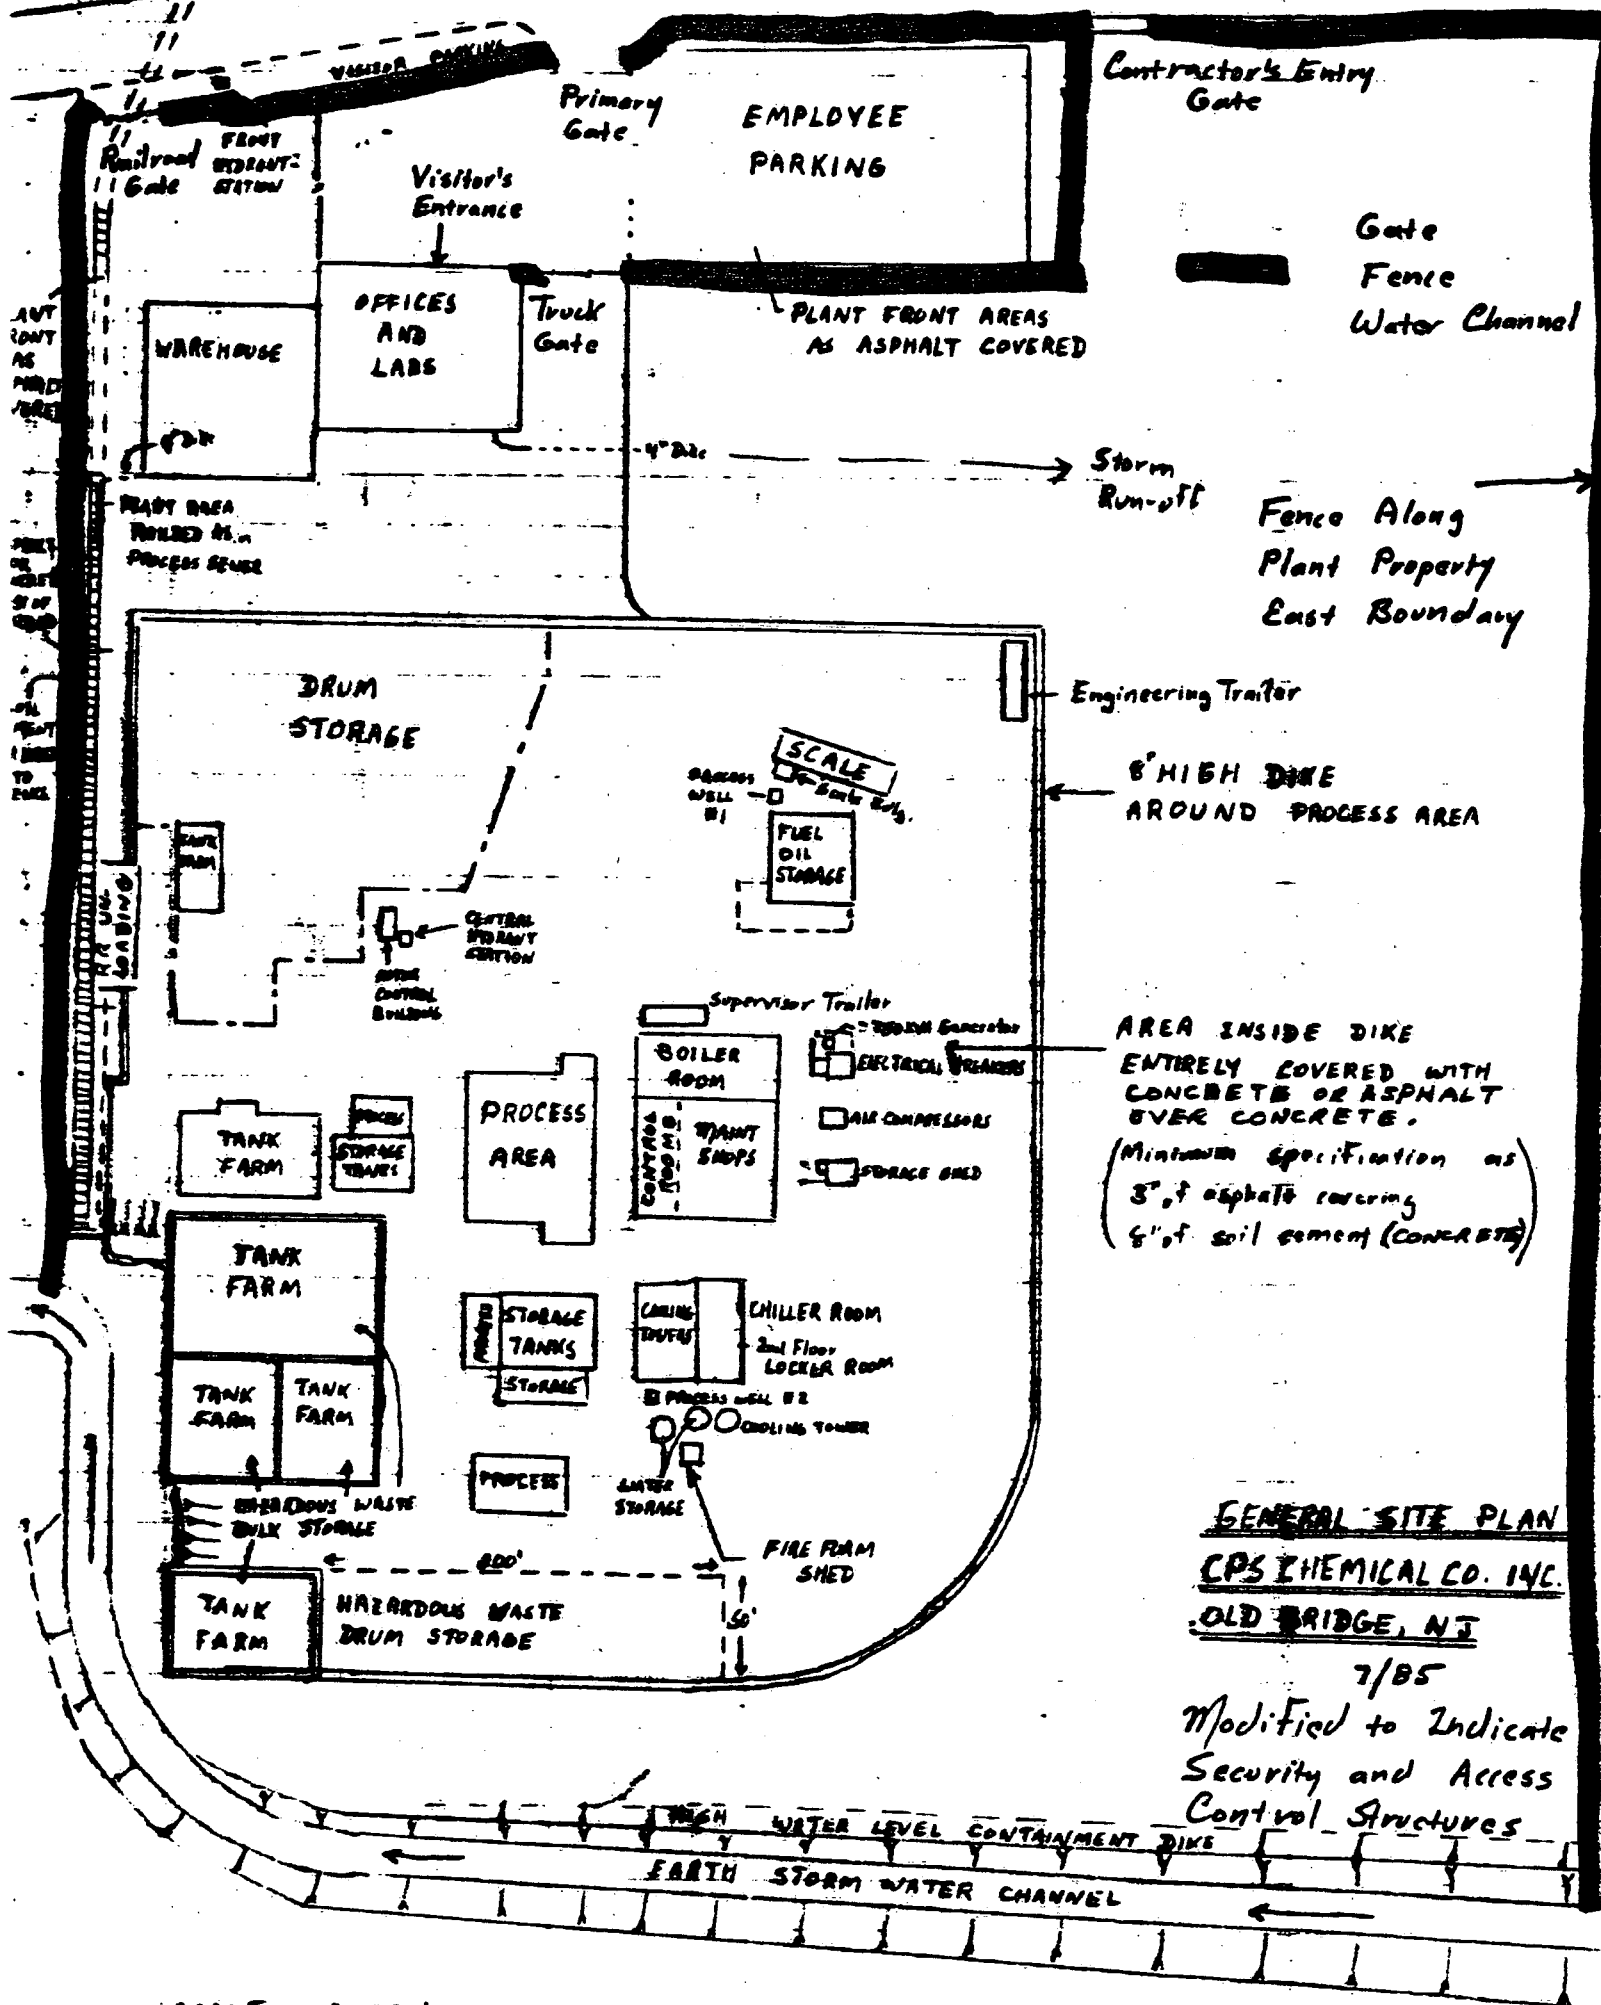 VISITOR PARKING
Primary
Gate
EMPLOYEE
PARKING
Contractor's Entry
Gate
Railroad
Gate
FRONT
HYDRANT
STATION
Visitor's
Entrance
Gate
Fence
Water Channel
WAREHOUSE
OFFICES
AND
LABS
Truck
Gate
PLANT FRONT AREAS
AS ASPHALT COVERED
4" Dike
Storm
Run-off
Fence Along
Plant Property
East Boundary
PLANT AREA
PROCESS SEWER
DRUM
STORAGE
Engineering Trailer
SCALE
Scale Bldg.
PROCESS
WELL
#1
FUEL
OIL
STORAGE
8" HIGH DIKE
AROUND PROCESS AREA
TANK
FARM
RR
LOADING
CENTRAL
HYDRANT
STATION
MOTOR
CONTROL
BUILDING
Supervisor Trailer
Generator
ELECTRICAL BREAKERS
BOILER
ROOM
CONTROL
ROOMS
MAINT
SHOPS
AIR COMPRESSORS
STORAGE SHED
AREA INSIDE DIKE
ENTIRELY COVERED WITH
CONCRETE OR ASPHALT
OVER CONCRETE.
(Minimum specification as
3" of asphalt covering
of soil cement (CONCRETE))
TANK
FARM
PROCESS
STORAGE
TANKS
PROCESS
AREA
TANK
FARM
TANK
FARM
TANK
FARM
PROCESS
STORAGE
TANKS
STORAGE
COOLING
TOWERS
CHILLER ROOM
2nd Floor
LOCKER ROOM
PROCESS WELL #2
COOLING TOWER
WATER
STORAGE
PROCESS
HAZARDOUS WASTE
BULK STORAGE
200'
50'
FIRE FORM
SHED
TANK
FARM
HAZARDOUS WASTE
DRUM STORAGE
GENERAL SITE PLAN
CPS CHEMICAL CO. INC.
OLD BRIDGE, NJ
7/85
Modified to Indicate
Security and Access
Control Structures
HIGH WATER LEVEL CONTAINMENT DIKE
EARTH STORM WATER CHANNEL